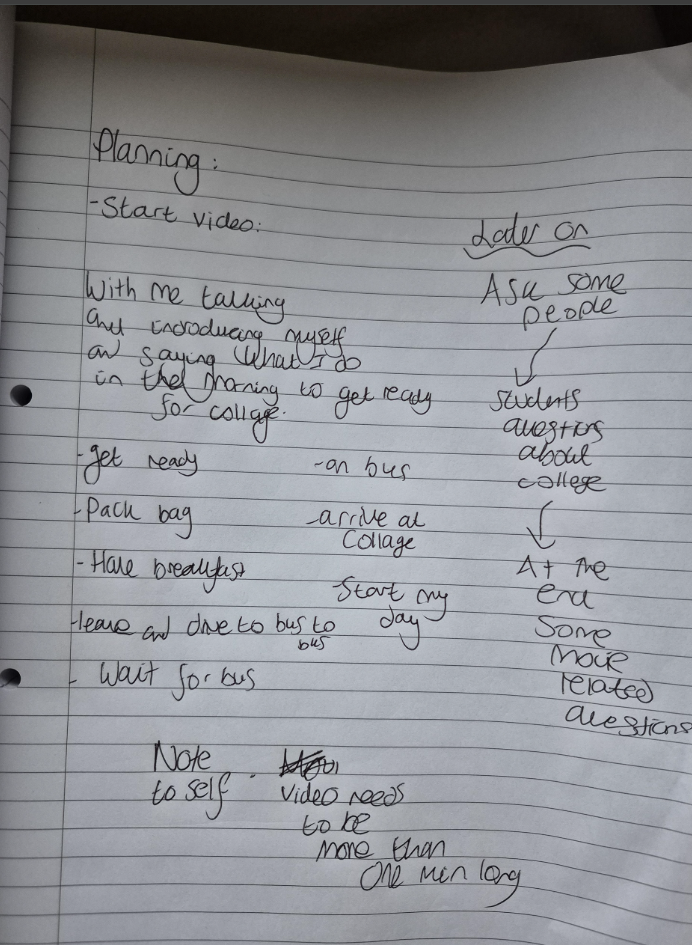 Planning:
-Start video:
With me talking
and introducing myself
and saying What I do
in the morning to get ready
for collage.
-get ready
-Pack bag
-Have breakfast
-leave and drive to bus to
bus
- Wait for bus
-on bus
-arrive at
Collage
-Start my
day
Later on
Ask some
people
students
questions
about
college
At the
end
Some
more
related
questions
Note
to self.
video needs
to be
more than
one min long